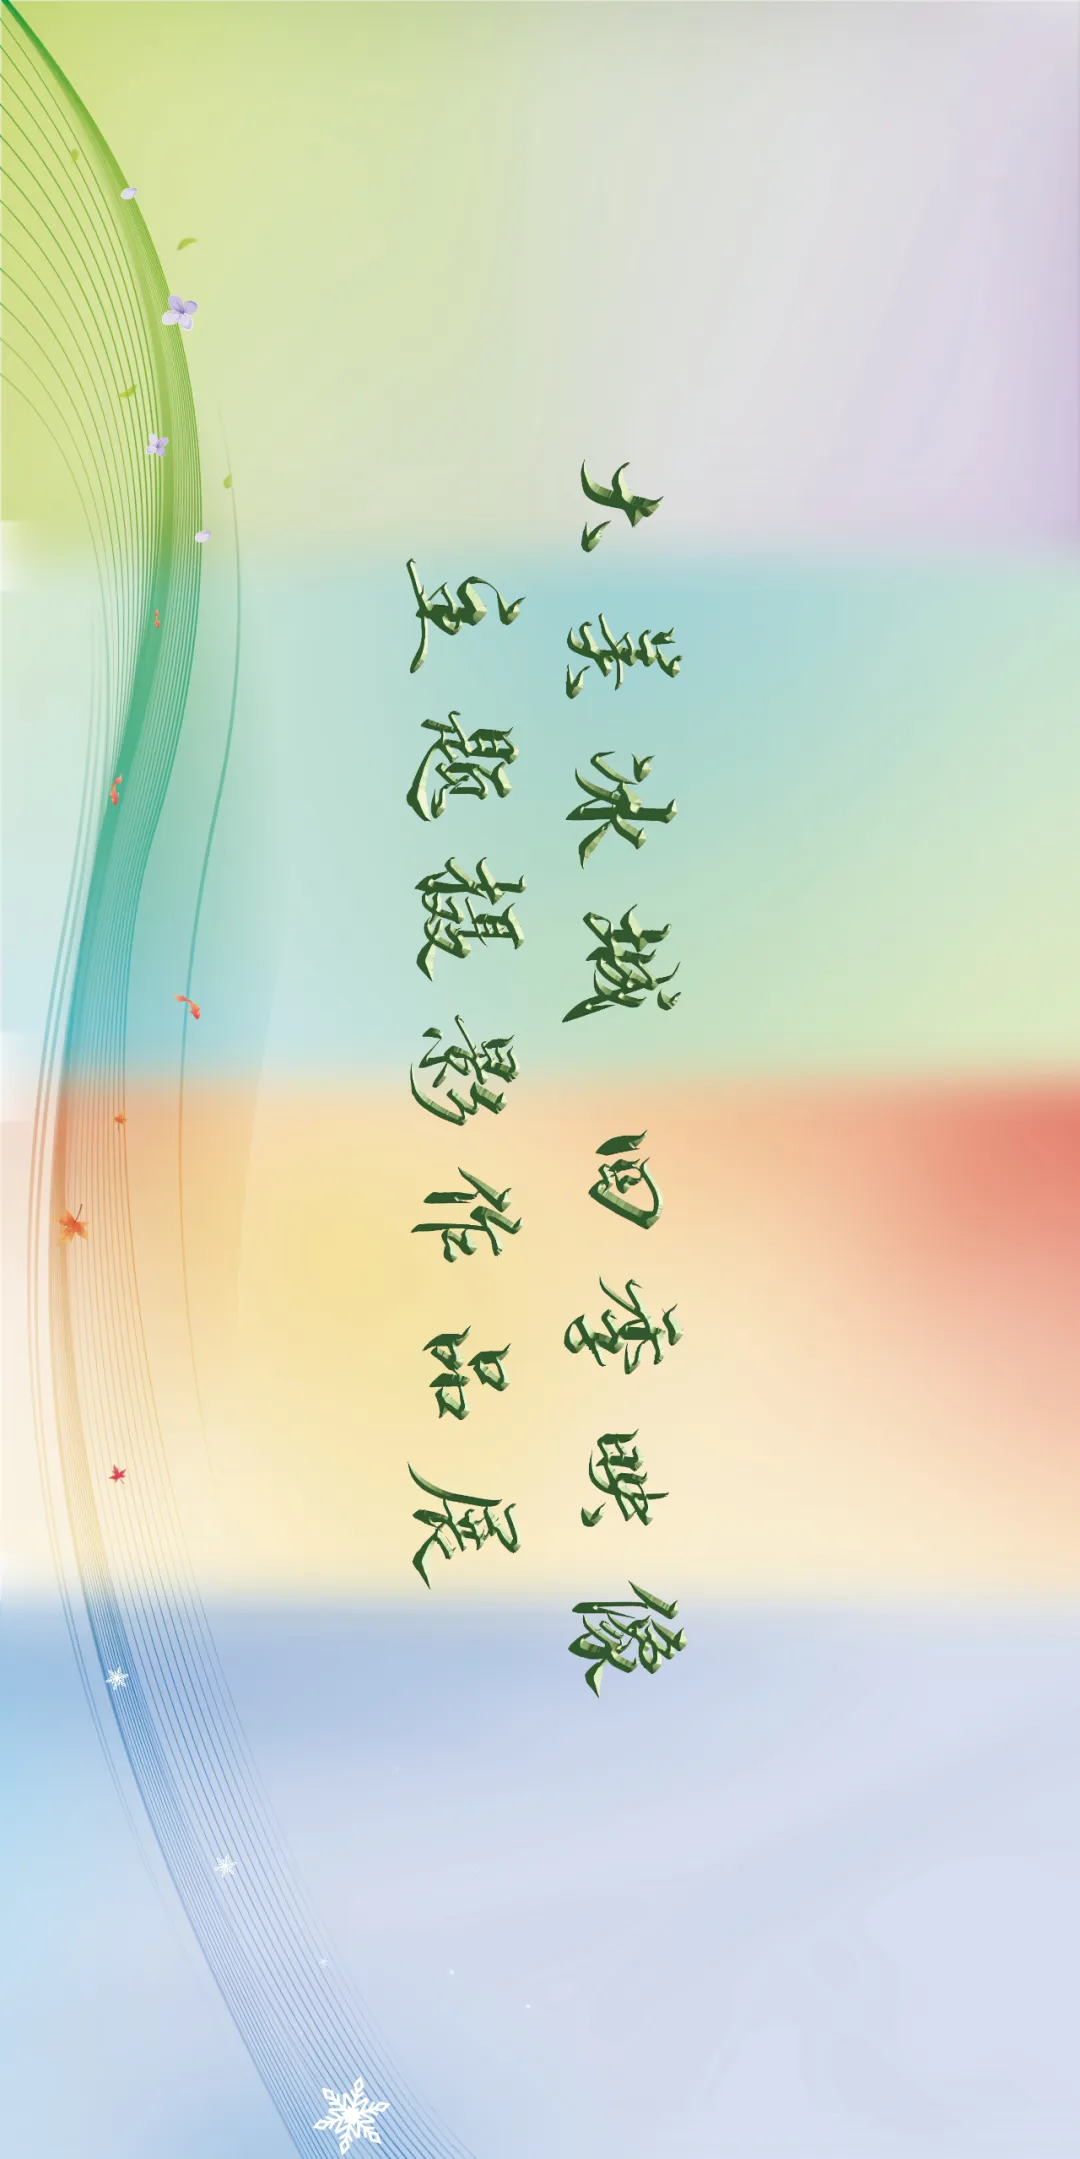 大美冰城 四季映像
主题摄影作品展